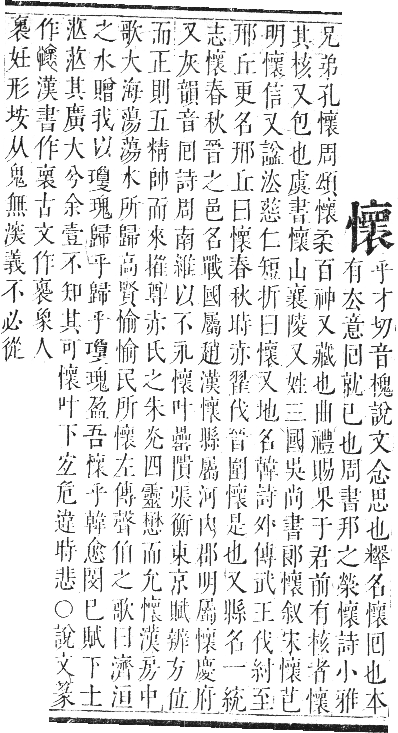 懷
乎乖切音槐說文念思也釋名懷囘也本
有去意囘就已也周書邦之榮懷詩小雅
兄弟孔懷周頌懷柔百神又藏也曲禮賜果于君前有核者懷
其核又包也虞書懷山襄陵又姓三國吳尚書郞懷叙宋懷芑
明懷信又諡法慈仁短折曰懷又地名韓詩外傳武王伐紂至
邢丘更名邢丘曰懷春秋時赤翟伐晉圍懷是也又縣名一統
志懷春秋晉之邑名戰國屬趙漢懷縣屬河內郡明屬懷慶府
又灰韻音囘詩周南維以不永懷叶罍隤張衡東京賦辨方位
而正則五精帥而來摧尊赤氏之朱光四靈懋而允懷漢房中
歌大海蕩蕩水所歸高賢愉愉民所懷左傳聲伯之歌曰濟洹
之水贈我以瓊瑰歸乎歸乎瓊瑰盈吾懷乎韓愈閔己賦下土
茫茫其廣大兮余壹不知其可懷叶下危違時悲○說文篆
作懷漢書作褱古文作褱象人
裹妊形按从鬼無深義不必從